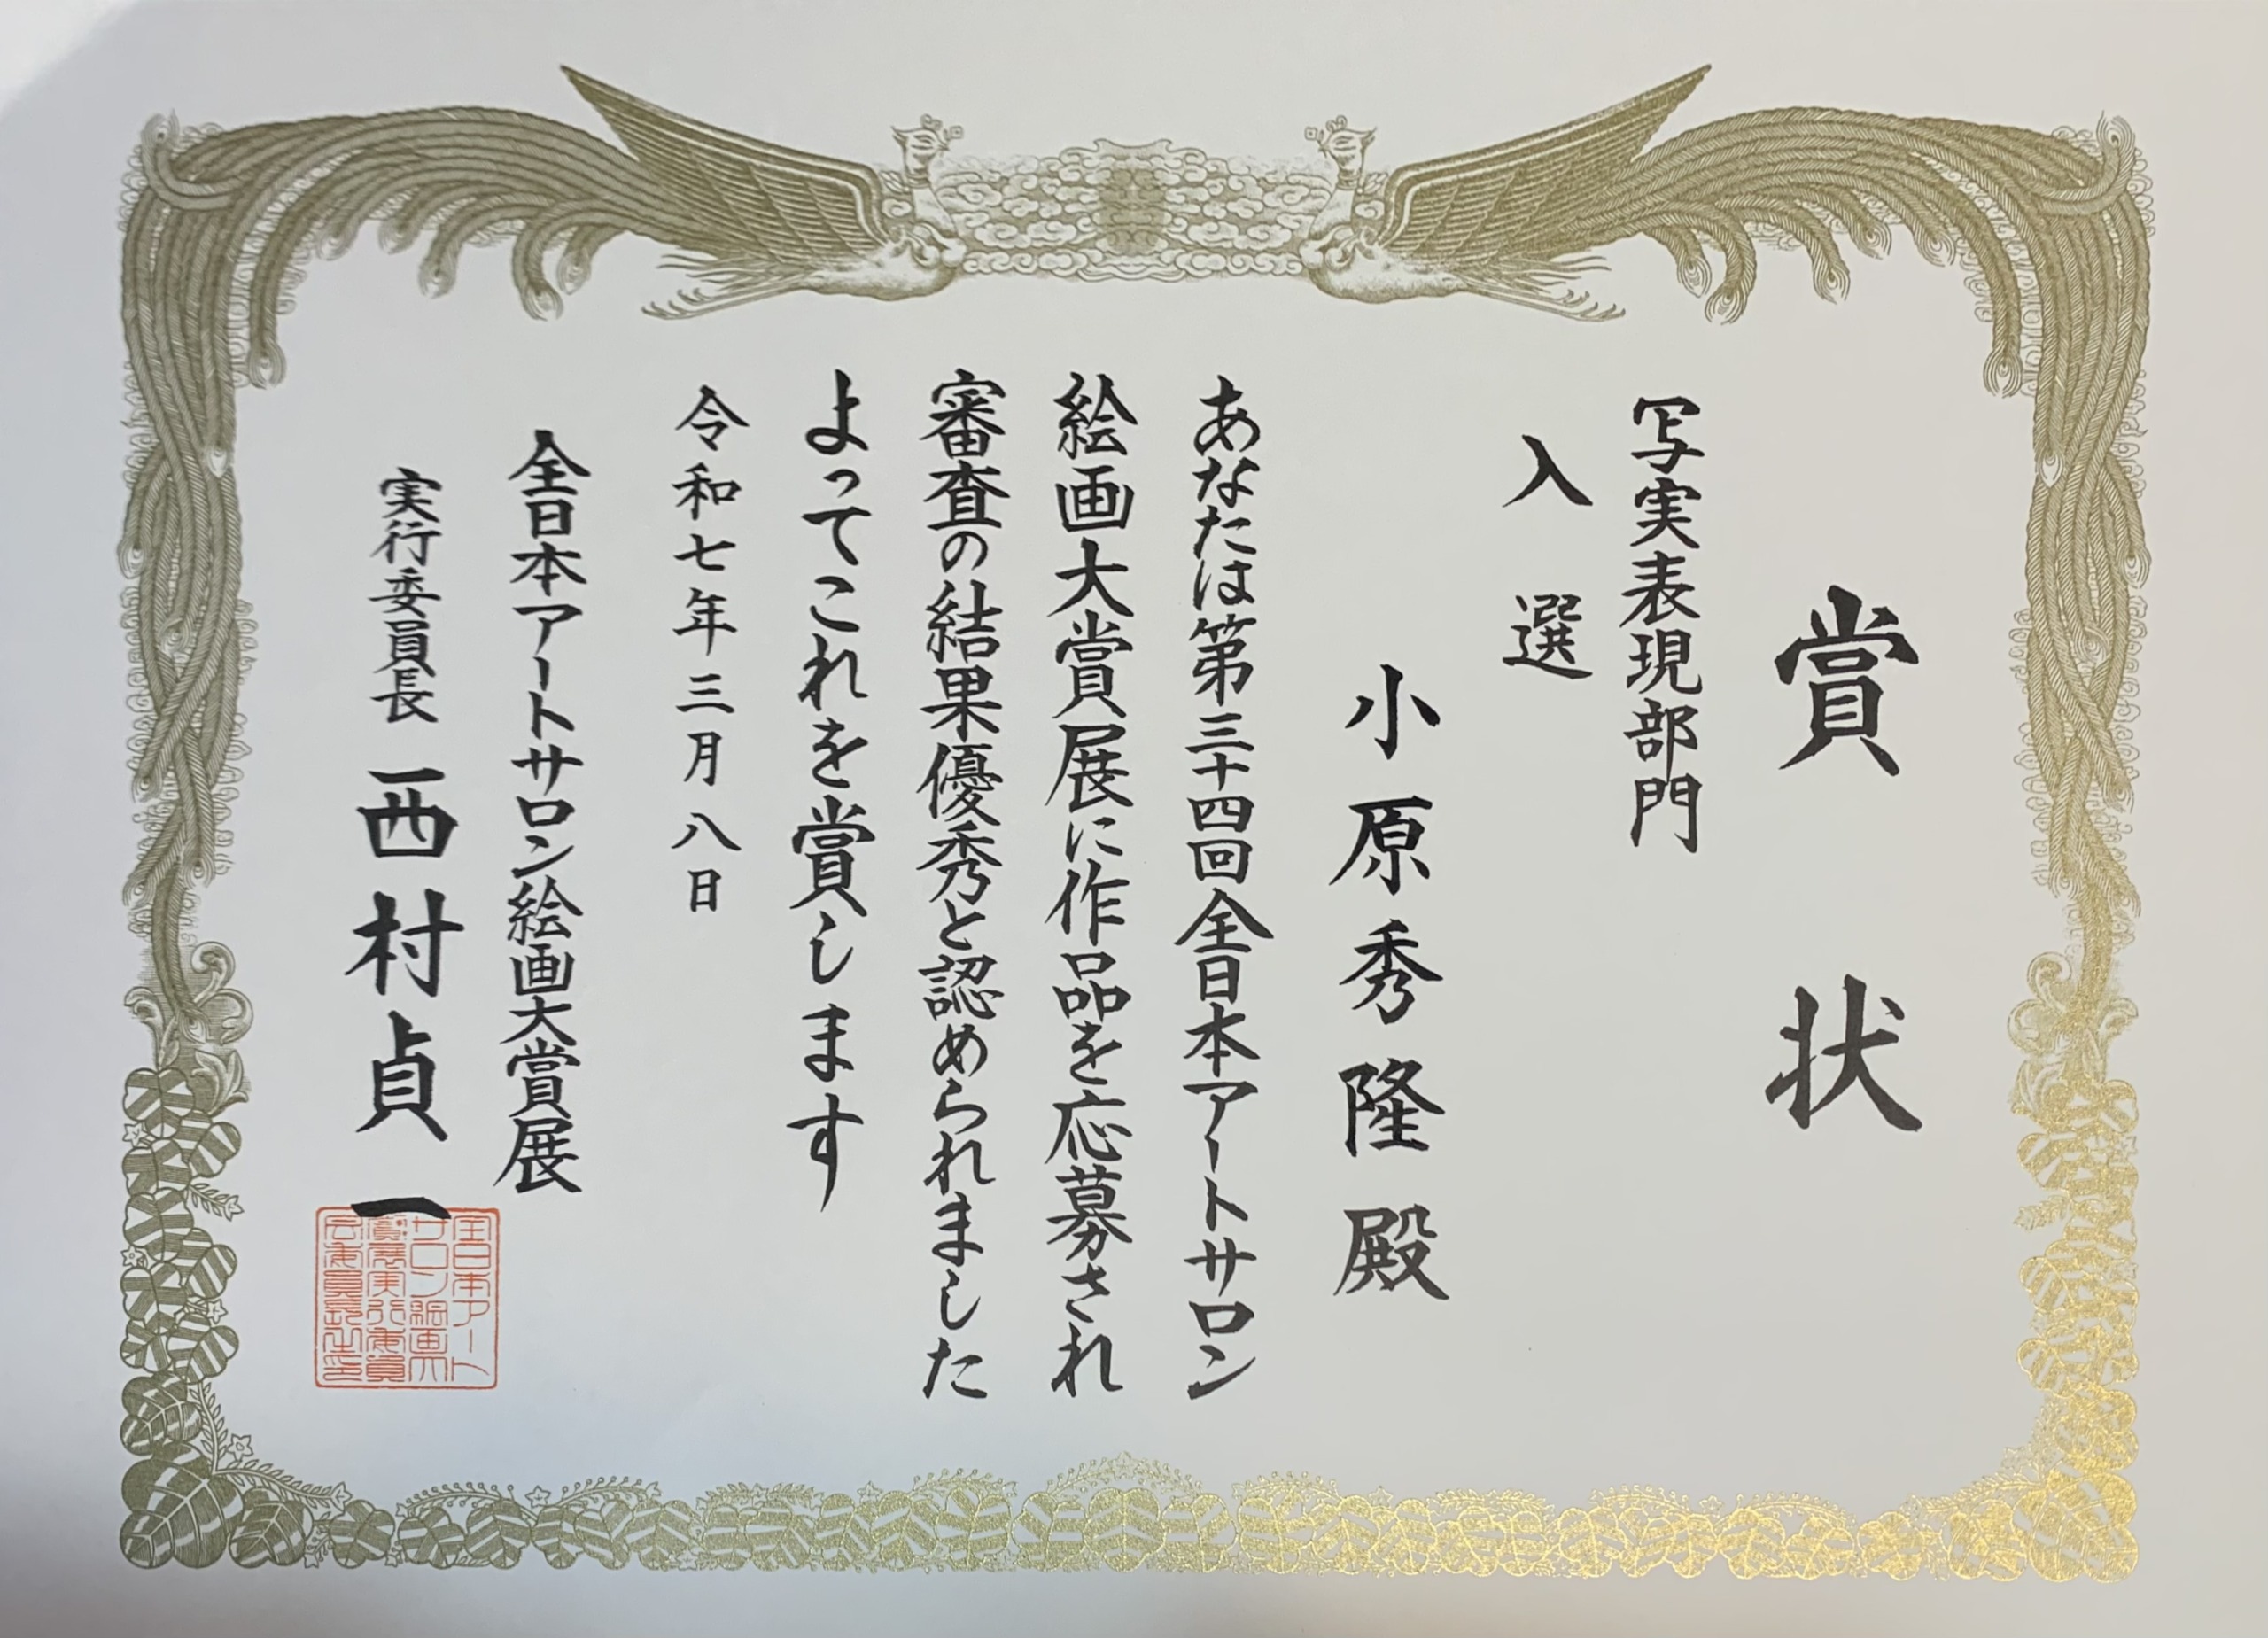 賞状
写実表現部門
入選
小原秀隆殿
あなたは第三十四回全日本アートサロン
絵画大賞展に作品を応募され
審査の結果優秀と認められました
よってこれを賞します
令和七年三月八日
全日本アートサロン絵画大賞展
実行委員長 西村貞一
全日本アート
サロン絵画大
賞展実行委員
会委員長之印